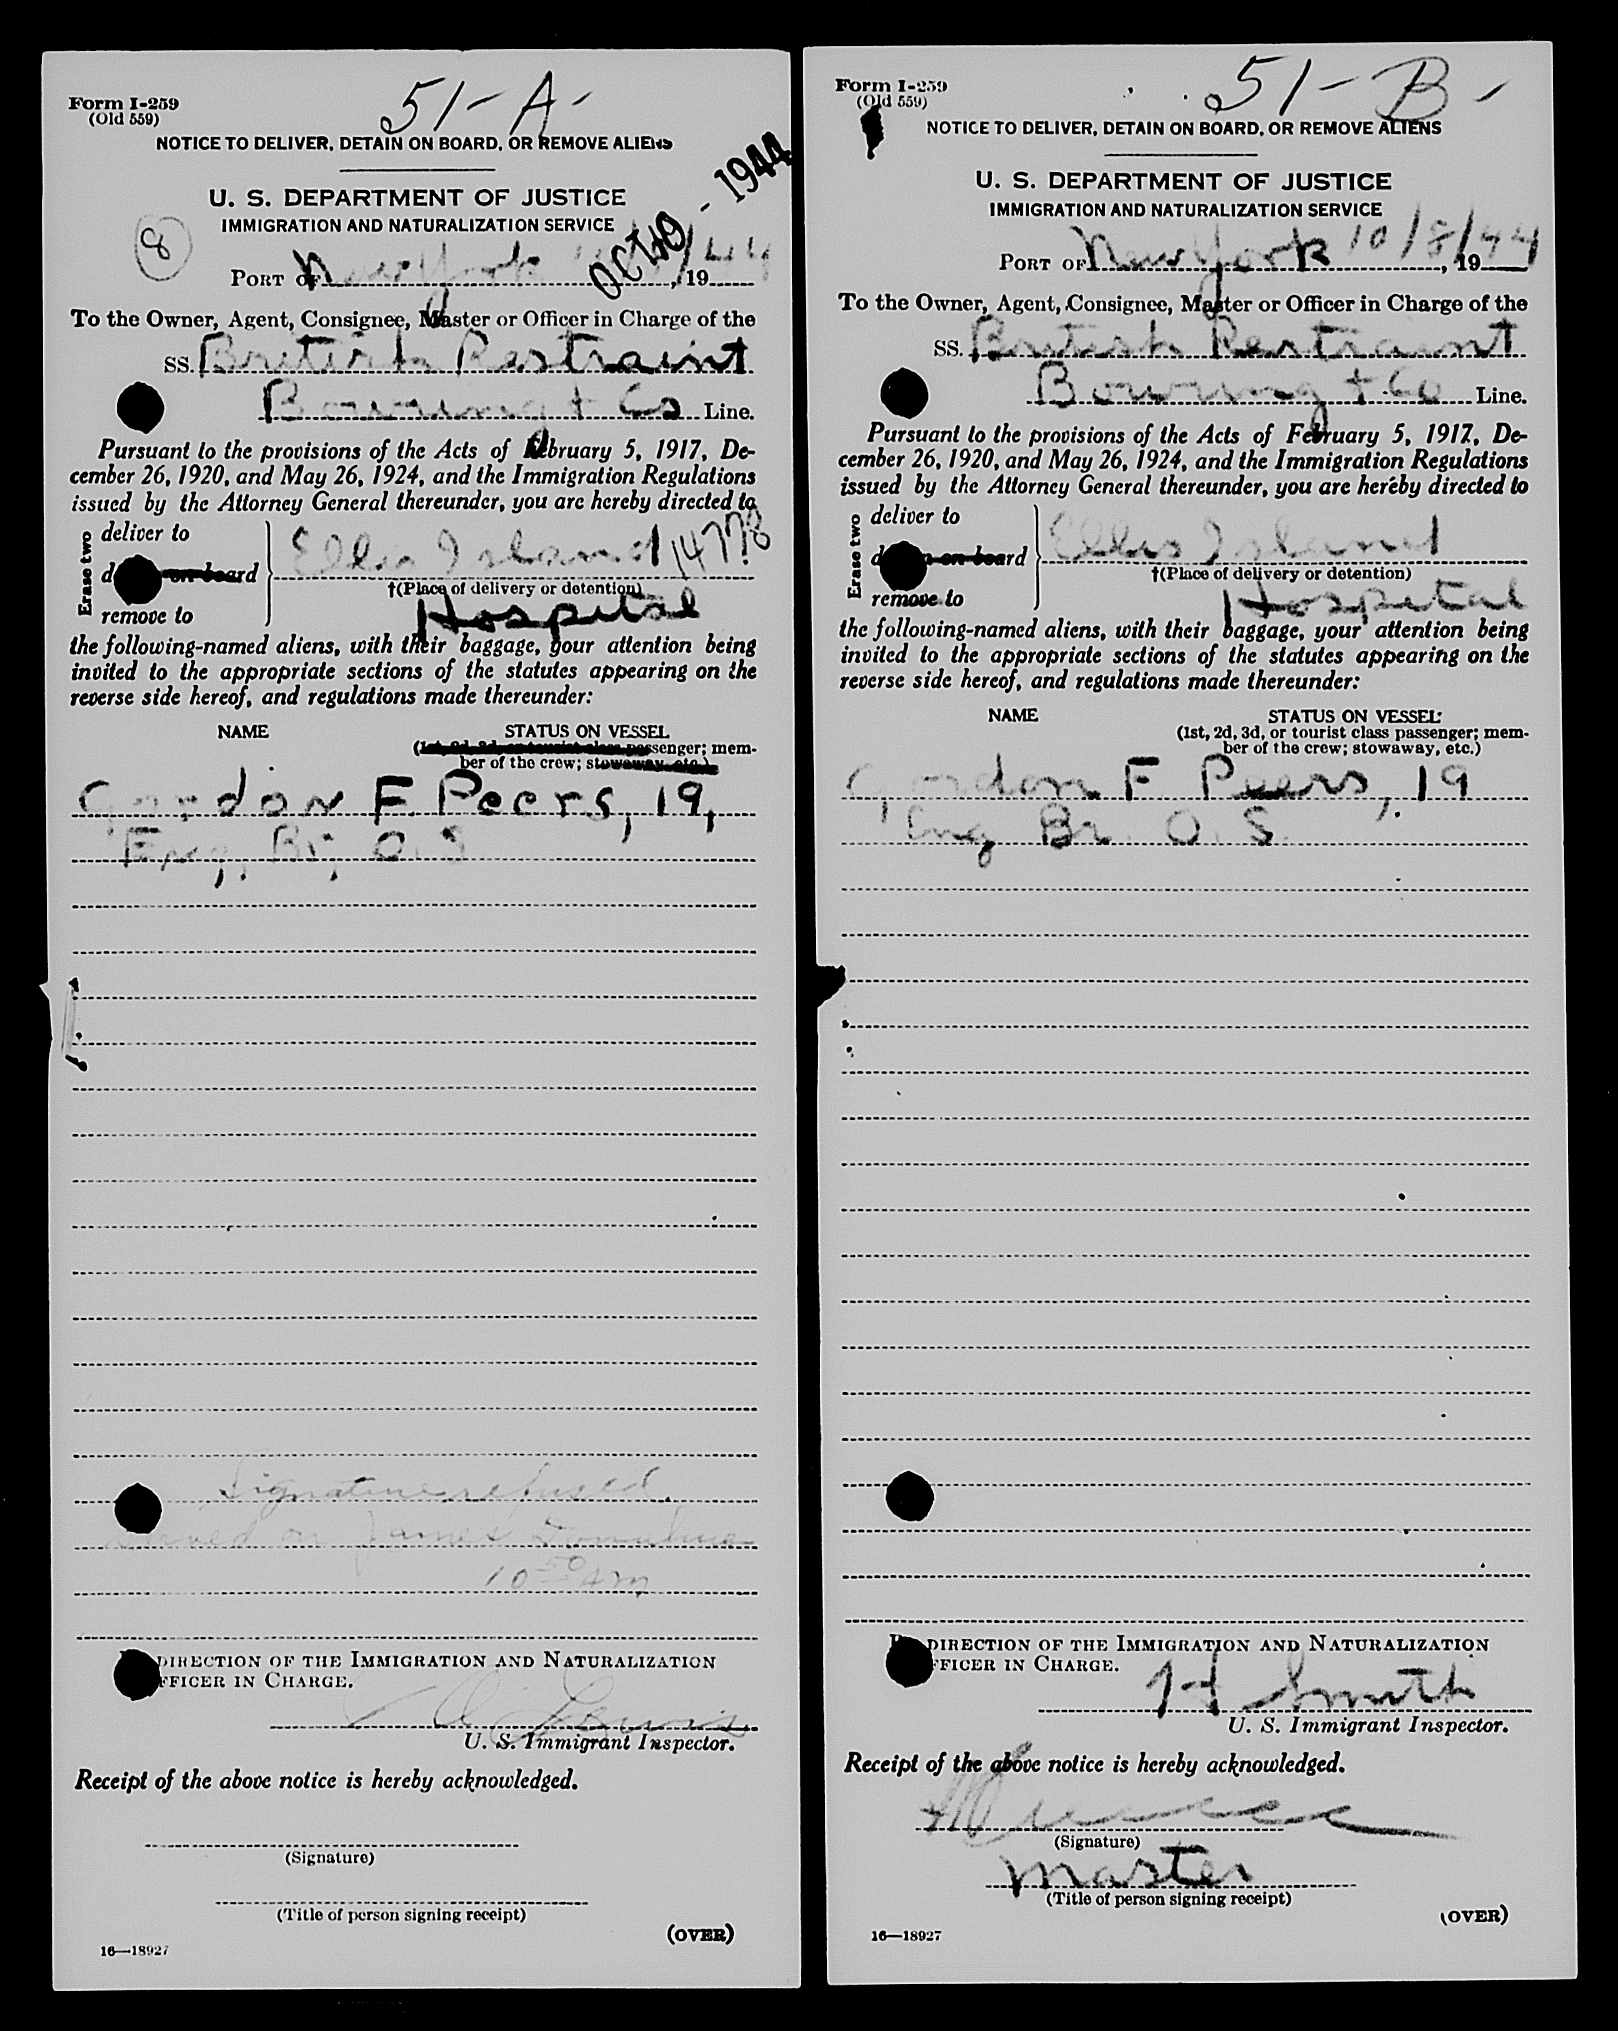 51-A-
Form I-259
(Old 559)
NOTICE TO DELIVER, DETAIN ON BOARD, OR REMOVE ALIENS
U. S. DEPARTMENT OF JUSTICE
IMMIGRATION AND NATURALIZATION SERVICE
8
OCT 10 - 1944
PORT OF New York /44, 19
To the Owner, Agent, Consignee, Master or Officer in Charge of the
SS. British Restraint
Bowring + Co Line.
Pursuant to the provisions of the Acts of February 5, 1917, De-
cember 26, 1920, and May 26, 1924, and the Immigration Regulations
issued by the Attorney General thereunder, you are hereby directed to
Erase two
deliver to
d on board
remove to
Ellis Island 14778
†(Place of delivery or detention)
Hospital
the following-named aliens, with their baggage, your attention being
invited to the appropriate sections of the statutes appearing on the
reverse side hereof, and regulations made thereunder:
NAME STATUS ON VESSEL
(1st, 2d, 3d, or tourist class passenger; mem-
ber of the crew; stowaway, etc.)
Gordon F. Peers, 19,
Eng, Br, O.S
Signature refused.
Served on James Donahue
10 50 AM
DIRECTION OF THE IMMIGRATION AND NATURALIZATION
FFICER IN CHARGE.
Lewis
U. S. Immigrant Inspector.
Receipt of the above notice is hereby acknowledged.
(Signature)
(Title of person signing receipt)
(OVER)
16—18927
51-B-
Form I-259
(Old 559)
NOTICE TO DELIVER, DETAIN ON BOARD, OR REMOVE ALIENS
U. S. DEPARTMENT OF JUSTICE
IMMIGRATION AND NATURALIZATION SERVICE
PORT OF New York 10/8/44, 19
To the Owner, Agent, Consignee, Master or Officer in Charge of the
SS. British Restraint
Bowring + Co Line.
Pursuant to the provisions of the Acts of February 5, 1917, De-
cember 26, 1920, and May 26, 1924, and the Immigration Regulations
issued by the Attorney General thereunder, you are hereby directed to
Erase two
deliver to
d n on board
remove to
Ellis Island
†(Place of delivery or detention)
Hospital
the following-named aliens, with their baggage, your attention being
invited to the appropriate sections of the statutes appearing on the
reverse side hereof, and regulations made thereunder:
NAME STATUS ON VESSEL
(1st, 2d, 3d, or tourist class passenger; mem-
ber of the crew; stowaway, etc.)
Gordon F Peers, 19
Eng Br. O.S.
DIRECTION OF THE IMMIGRATION AND NATURALIZATION
FFICER IN CHARGE.
H Smith
U. S. Immigrant Inspector.
Receipt of the above notice is hereby acknowledged.
(Signature)
Master
(Title of person signing receipt)
(OVER)
16—18927